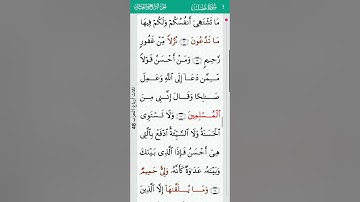 سُورَةُ فُصِّلَتْ
مَا تَشْتَهِىٓ أَنفُسُكُمْ وَلَكُمْ فِيهَا
مَا تَدَّعُونَ ۝ نُزُلًا مِّنْ غَفُورٍ
رَّحِيمٍ ۝ وَمَنْ أَحْسَنُ قَوْلًا
مِّمَّن دَعَآ إِلَى ٱللَّهِ وَعَمِلَ
صَٰلِحًا وَقَالَ إِنَّنِى مِنَ
ٱلْمُسْلِمِينَ ۝ وَلَا تَسْتَوِى
ٱلْحَسَنَةُ وَلَا ٱلسَّيِّئَةُ ٱدْفَعْ بِٱلَّتِى
هِىَ أَحْسَنُ فَإِذَا ٱلَّذِى بَيْنَكَ
وَبَيْنَهُۥ عَدَٰوَةٌ كَأَنَّهُۥ وَلِىٌّ حَمِيمٌ
۝ وَمَا يُلَقَّىٰهَآ إِلَّا ٱلَّذِينَ